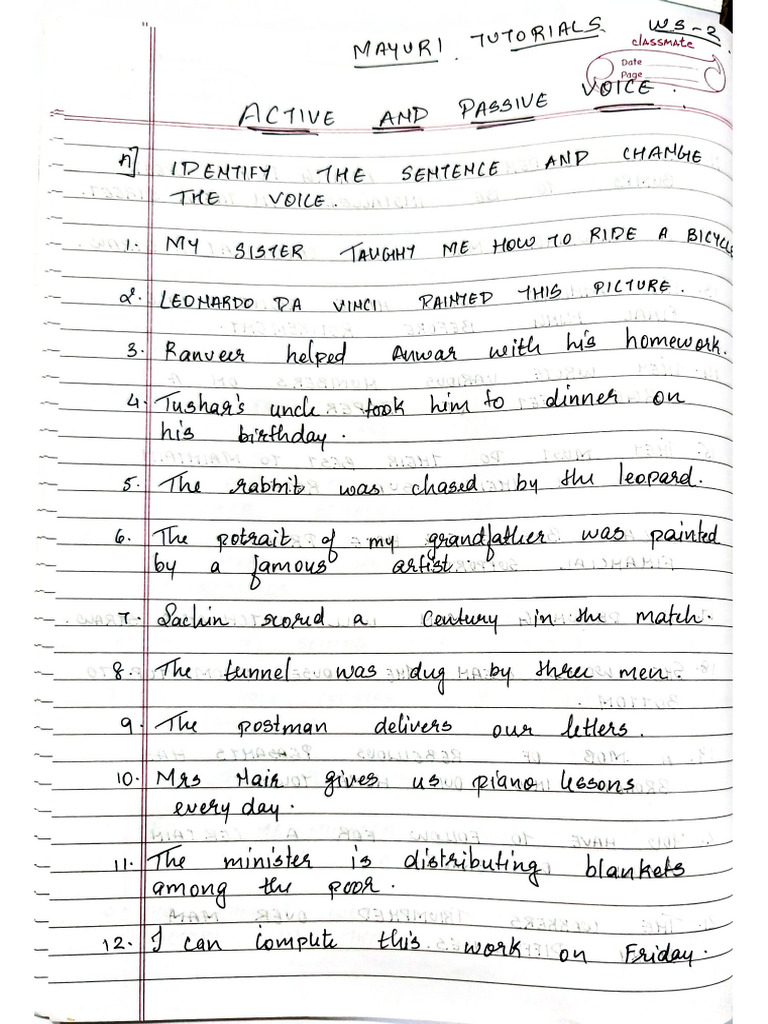 MAYURI TUTORIALS WS-2
classmate
Date
Page
ACTIVE AND PASSIVE VOICE.
A] IDENTIFY THE SENTENCE AND CHANGE
THE VOICE.
1. MY SISTER TAUGHT ME HOW TO RIDE A BICYCLE
2. LEONARDO DA VINCI PAINTED THIS PICTURE.
3. Ranveer helped Anwar with his homework.
4. Tushar's uncle took him to dinner on
his birthday.
5. The rabbit was chased by the leopard.
6. The potrait of my grandfather was painted
by a famous artist.
7. Sachin scored a century in the match.
8. The tunnel was dug by three men.
9. The postman delivers our letters.
10. Mrs Nair gives us piano lessons
every day.
11. The minister is distributing blankets
among the poor.
12. I can complete this work on Friday.